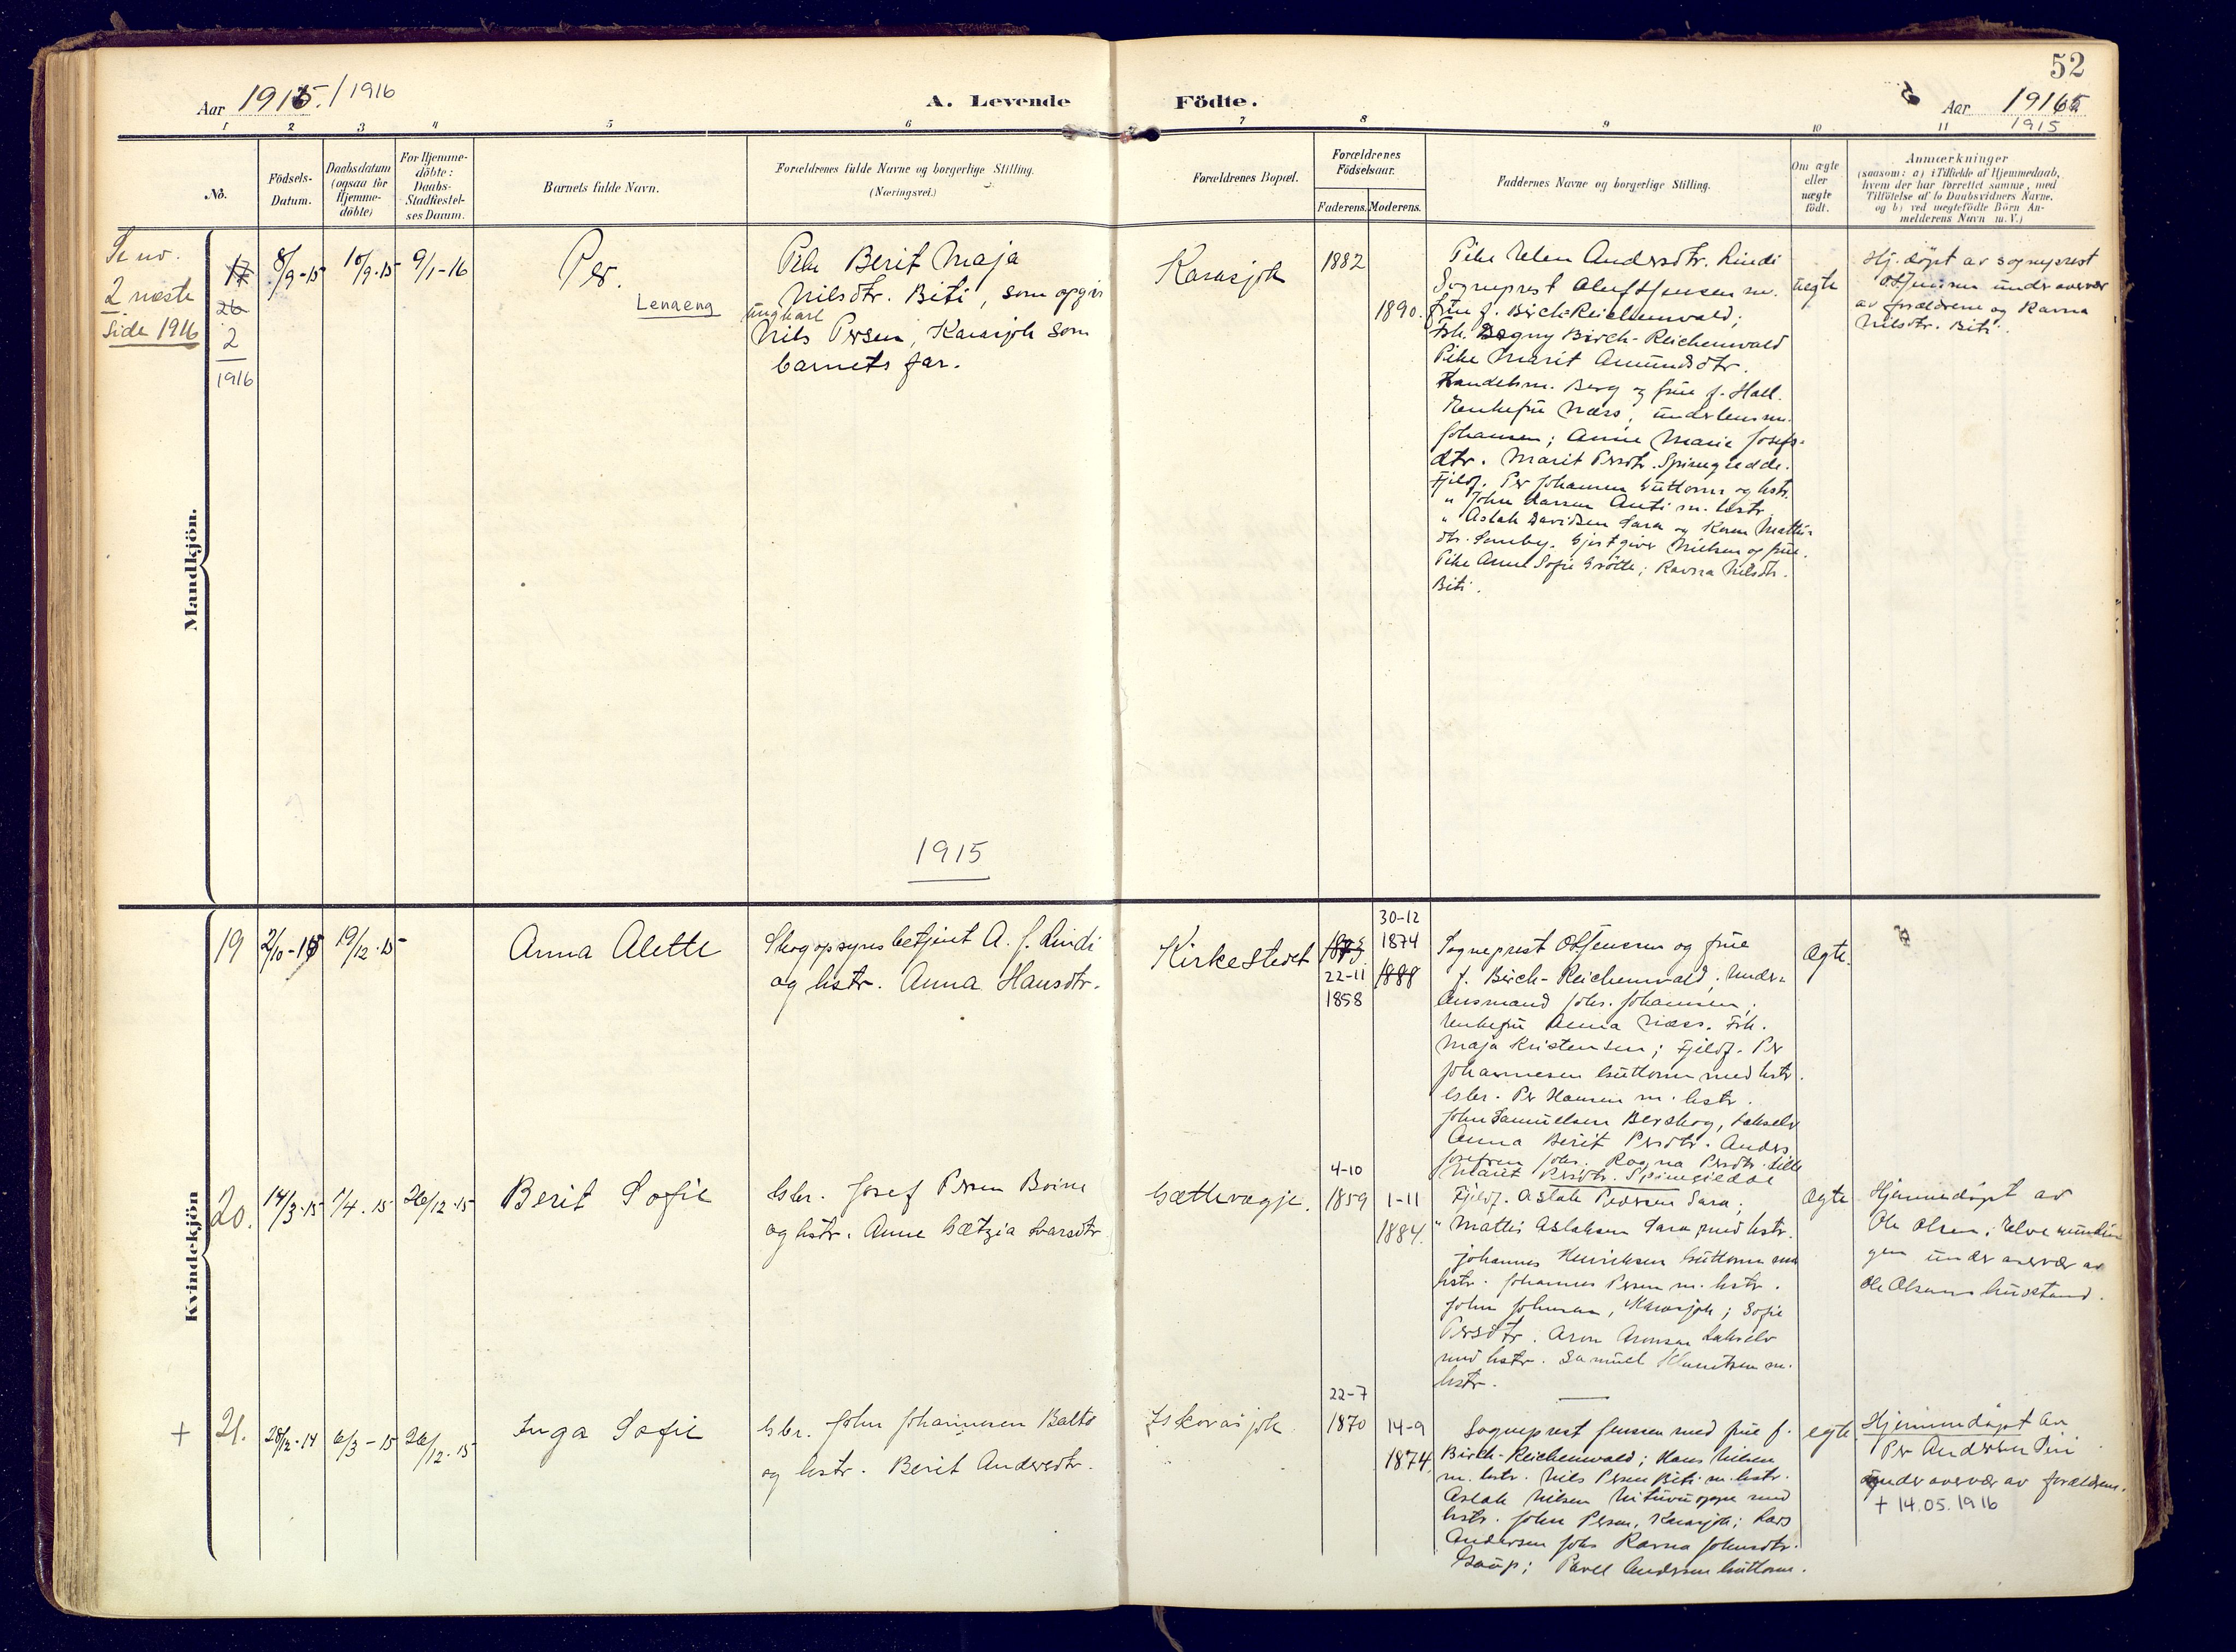 52
Aar 1915. / 1916
A. Levende Födte.
Aar 1916
1915
1 2 3 4 5 6 7 8 9 10 11
No.
Födsels-
Datum.
Daabsdatum
(ogsaa for
Hjemme-
döbte)
For Hjemme-
döbte:
Daabs-
Stadfæstel-
ses Datum.
Barnets fulde Navn.
Forældrenes fulde Navne og borgerlige Stilling.
(Næringsvei.)
Forældrenes Bopæl.
Forældrenes
Födselsaar.
Faderens. Moderens.
Faddernes Navne og borgerlige Stilling.
Om ægte
eller
uægte
födt.
Anmærkninger
(saasom: a) i Tilfælde af Hjemmedaab,
hvem der har forrettet samme, med
Tilföielse af to Daabsvidners Navne,
og b) ved uægtefödte Börn An-
melderens Navn m. V.)
Mandkjön.
Se nr.
2 næste
Side 1916
17
26
2
1916
8/9-15
10/9-15
9/1-16
Per.
Lenaeng
Pike Berit Maja
Nilsdtr. Biti, som opgir
ungkarl
Nils Persen, Karasjok som
barnets far.
Karasjok
1882
1890.
Pike Elen Andersdtr. Lindi
Sogneprest Oluf Jenssen m.
frue f. Birch-Reichenwald;
Frk. Dagny Birch-Reichenwald
Pike Marit Amundsdtr.
Handelsm. Berg og frue f. Hall.
Enkefru Næss, underlensm.
Johansen; Anne Marie Josefs-
dtr. Marit Persdtr. Spinegiedde.
Fjeldf. Per Johansen Guttorm og hstr.
" John Larsen Anti m. hstr.
" Aslak Davidsen Sara og Karen Mathis-
dtr. Somby. Gjestgiver Nielsen og frue.
Pike Anne Sofie Grötte; Ravna Nilsdtr.
Biti.
uegte
Hj. döpt av sogneprest
O. Jenssen under overvær
av forældrene og Ravna
Nilsdtr. Biti.
1915
Kvindekjön
19
2/10-15
19/12-15
Anna Alette
Skogopsynsbetjent A. J. Lindi
og hstr. Anna Hansdtr.
Kirkestedet
1873
22-11
1858
30-12
1874
1888
Sogneprest O. Jenssen og frue
f. Birch-Reichenwald; Under-
lensmand Johs. Johannsen;
Enkefru Anna Næss. Frk.
Maja Kristensen; Fjeldf. Per
Johannesen Guttorm med hstr.
Gbr. Per Hansen m. hstr.
John Samuelsen Berskog, Lakselv
Anna Berit Persdtr. Anders
Josefsen Johs. Ragna Persdtr.
Marit Persdtr. Spinegiedde
Ægte.
20.
14/3-15
7/4. 15
26/12-15
Berit Sofie
Gbr. Josef Persen Boine
og hstr. Anne Gætzia Larsdtr
Gættevagje.
4-10
1859
1-11
1884.
Fjeldf. Aslak Pedersen Sara;
" Mattis Aslaksen Sara, med hstr.
Johannes Henriksen Guttorm med
hstr. Johannes Persen m. hstr.
John Johnsen, Karasjok; Sofie
Persdtr. Aron Aronsen Lakselv
med hstr. Samuel Klemetsen m.
hstr.
Ægte
Hjemmedöpt av
Ole Olsen, Elvemundin
gen under overvær av
Ole Olsens husstand.
+
21.
28/2-14
6/3-15
26/12.15
Inga Sofie
Gbr. John Johannesen Balto
og hstr. Berit Andersdtr.
Iskorasjok
22-7
1870
14-9
1874.
Sogneprest Jenssen med frue f.
Birch-Reichenwald; Hans Nilsen
m. hstr. Nils Persen Biti m. hstr.
Aslak Nilsen Nituvuoppe med
hstr. John Persen, Karasjok; Lars
Andersen Johs Ravna Johnsdtr.
Gaup; Pavel Andersen Guttorm.
egte
Hjemmedöpt av
Per Andersen Piri
under overvær av forældrene.
+ 14.05.1916